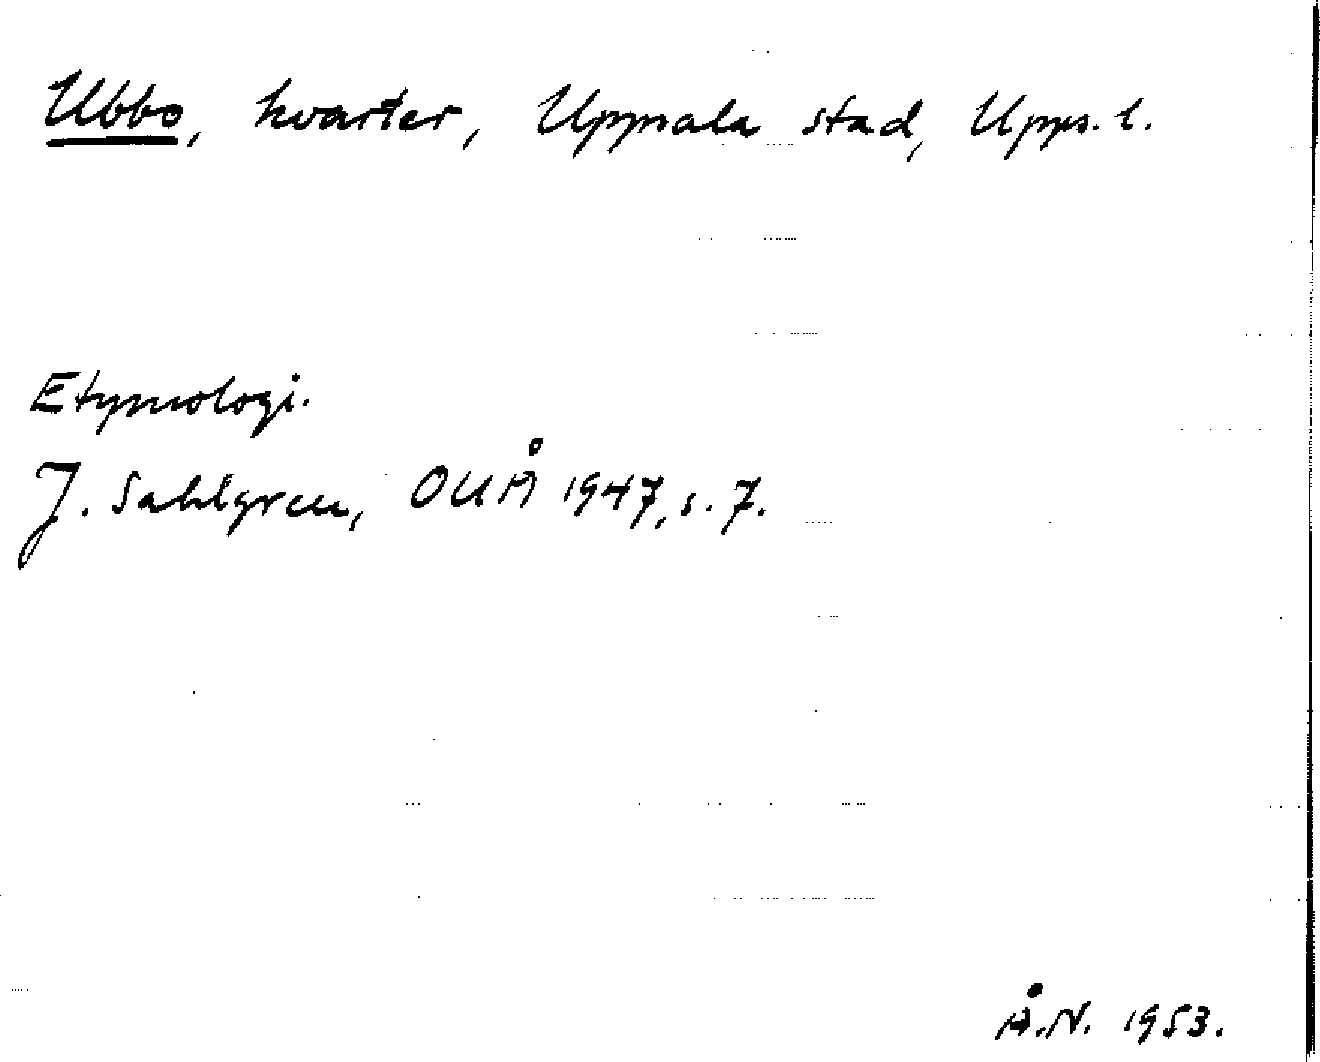 Ubbo, kvarter, Uppsala stad, Upps. l.
Etymologi.
J. Sahlgren, OUÅ 1947, s. 7.
Å.N. 1953.